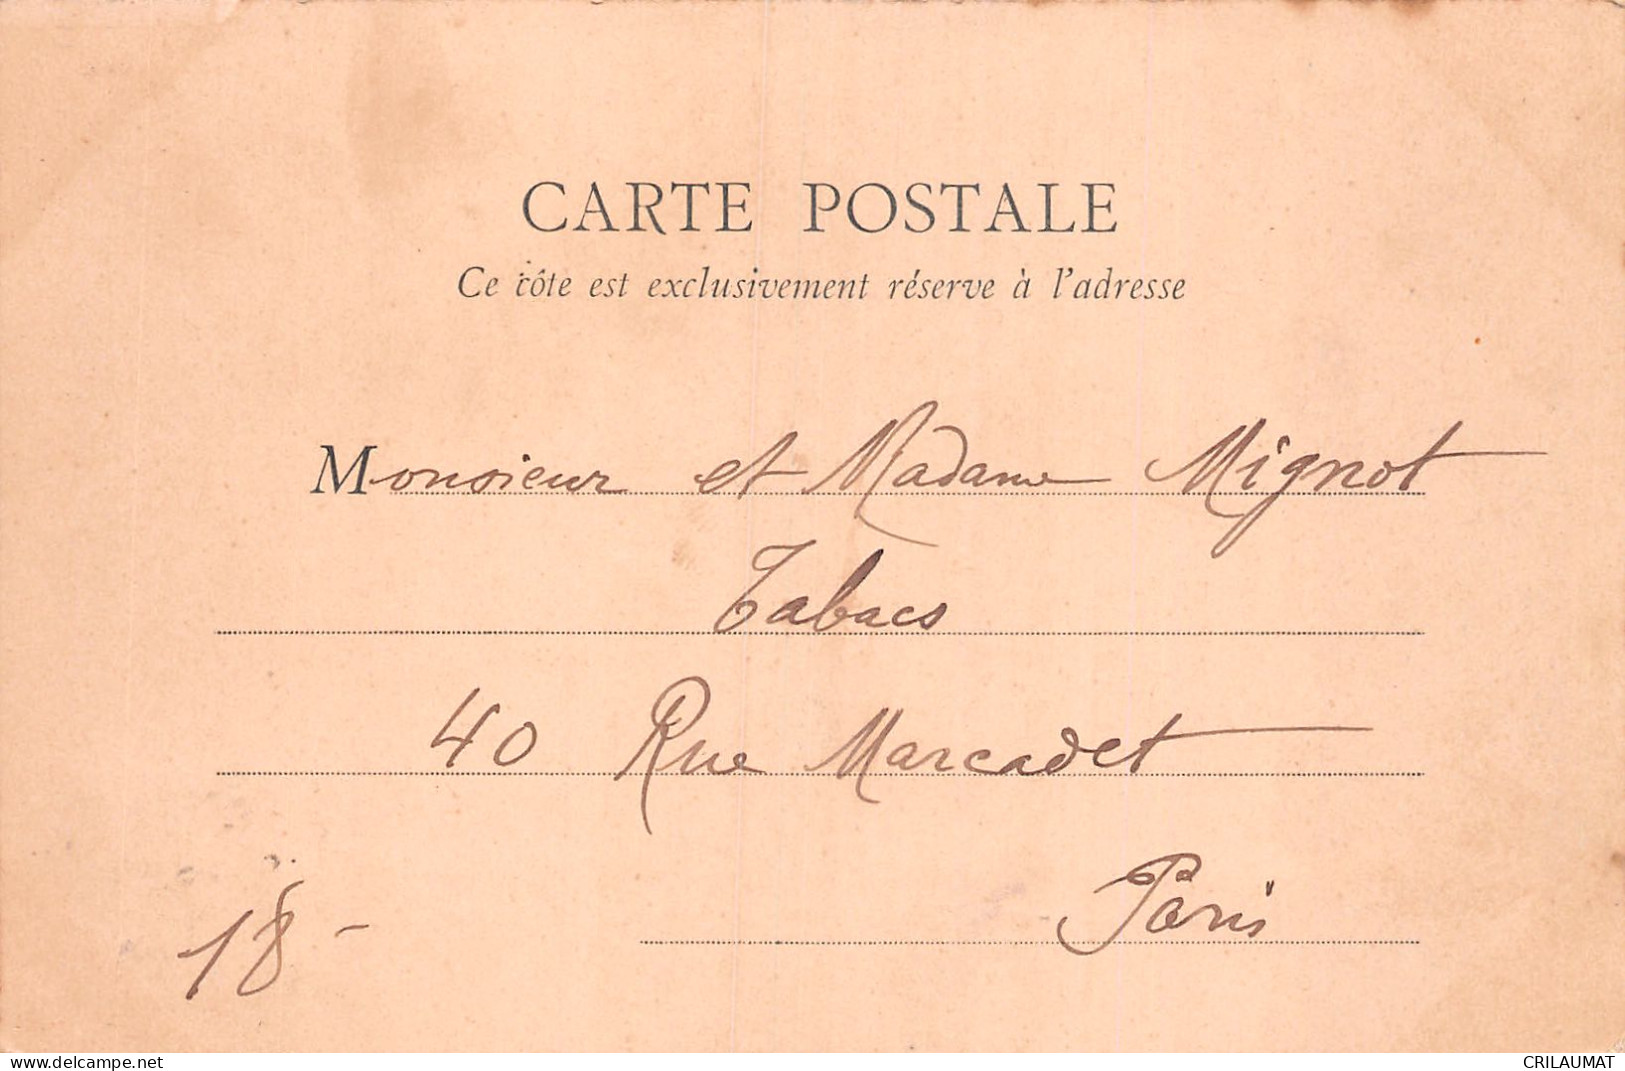 CARTE POSTALE
Ce côte est exclusivement réserve à l'adresse
Monsieur et Madame Mignot
Tabacs
40 Rue Marcadet
Paris
18 -
www.delcampe.net
CRILAUMAT